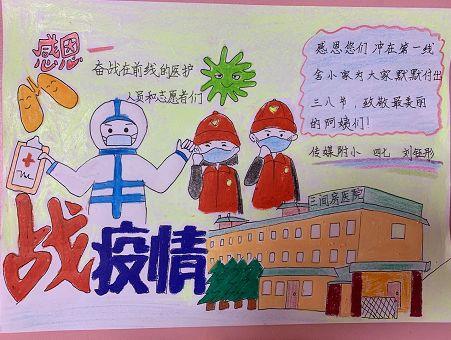 感恩
奋战在前线的医护
人员和志愿者们
感恩您们 冲在第一线
舍小家为大家默默付出
三八节，致敬最美丽
的阿姨们！
传媒附小 四七 刘钰彤
三间房医院
战疫情